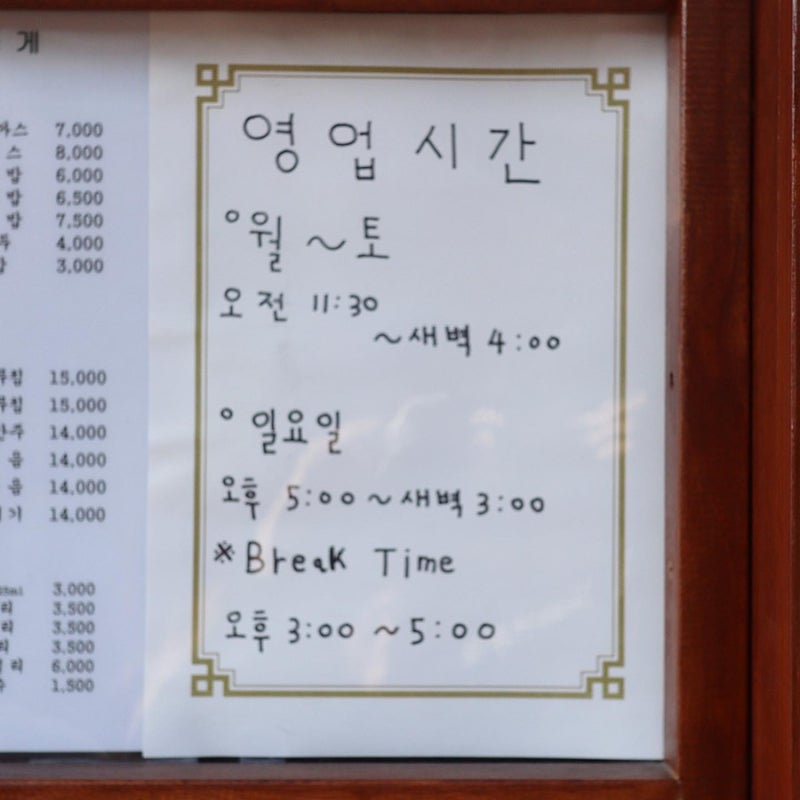 게
7,000
스 8,000
밥 6,000
밥 6,500
밥 7,500
4,000
3,000
15,000
15,000
14,000
음 14,000
음 14,000
기 14,000
3,000
리 3,500
리 3,500
3,500
리 6,000
1,500
영업시간
○월 ~ 토
오전 11:30
~새벽 4:00
○일요일
오후 5:00 ~ 새벽 3:00
※Break Time
오후 3:00 ~ 5:00